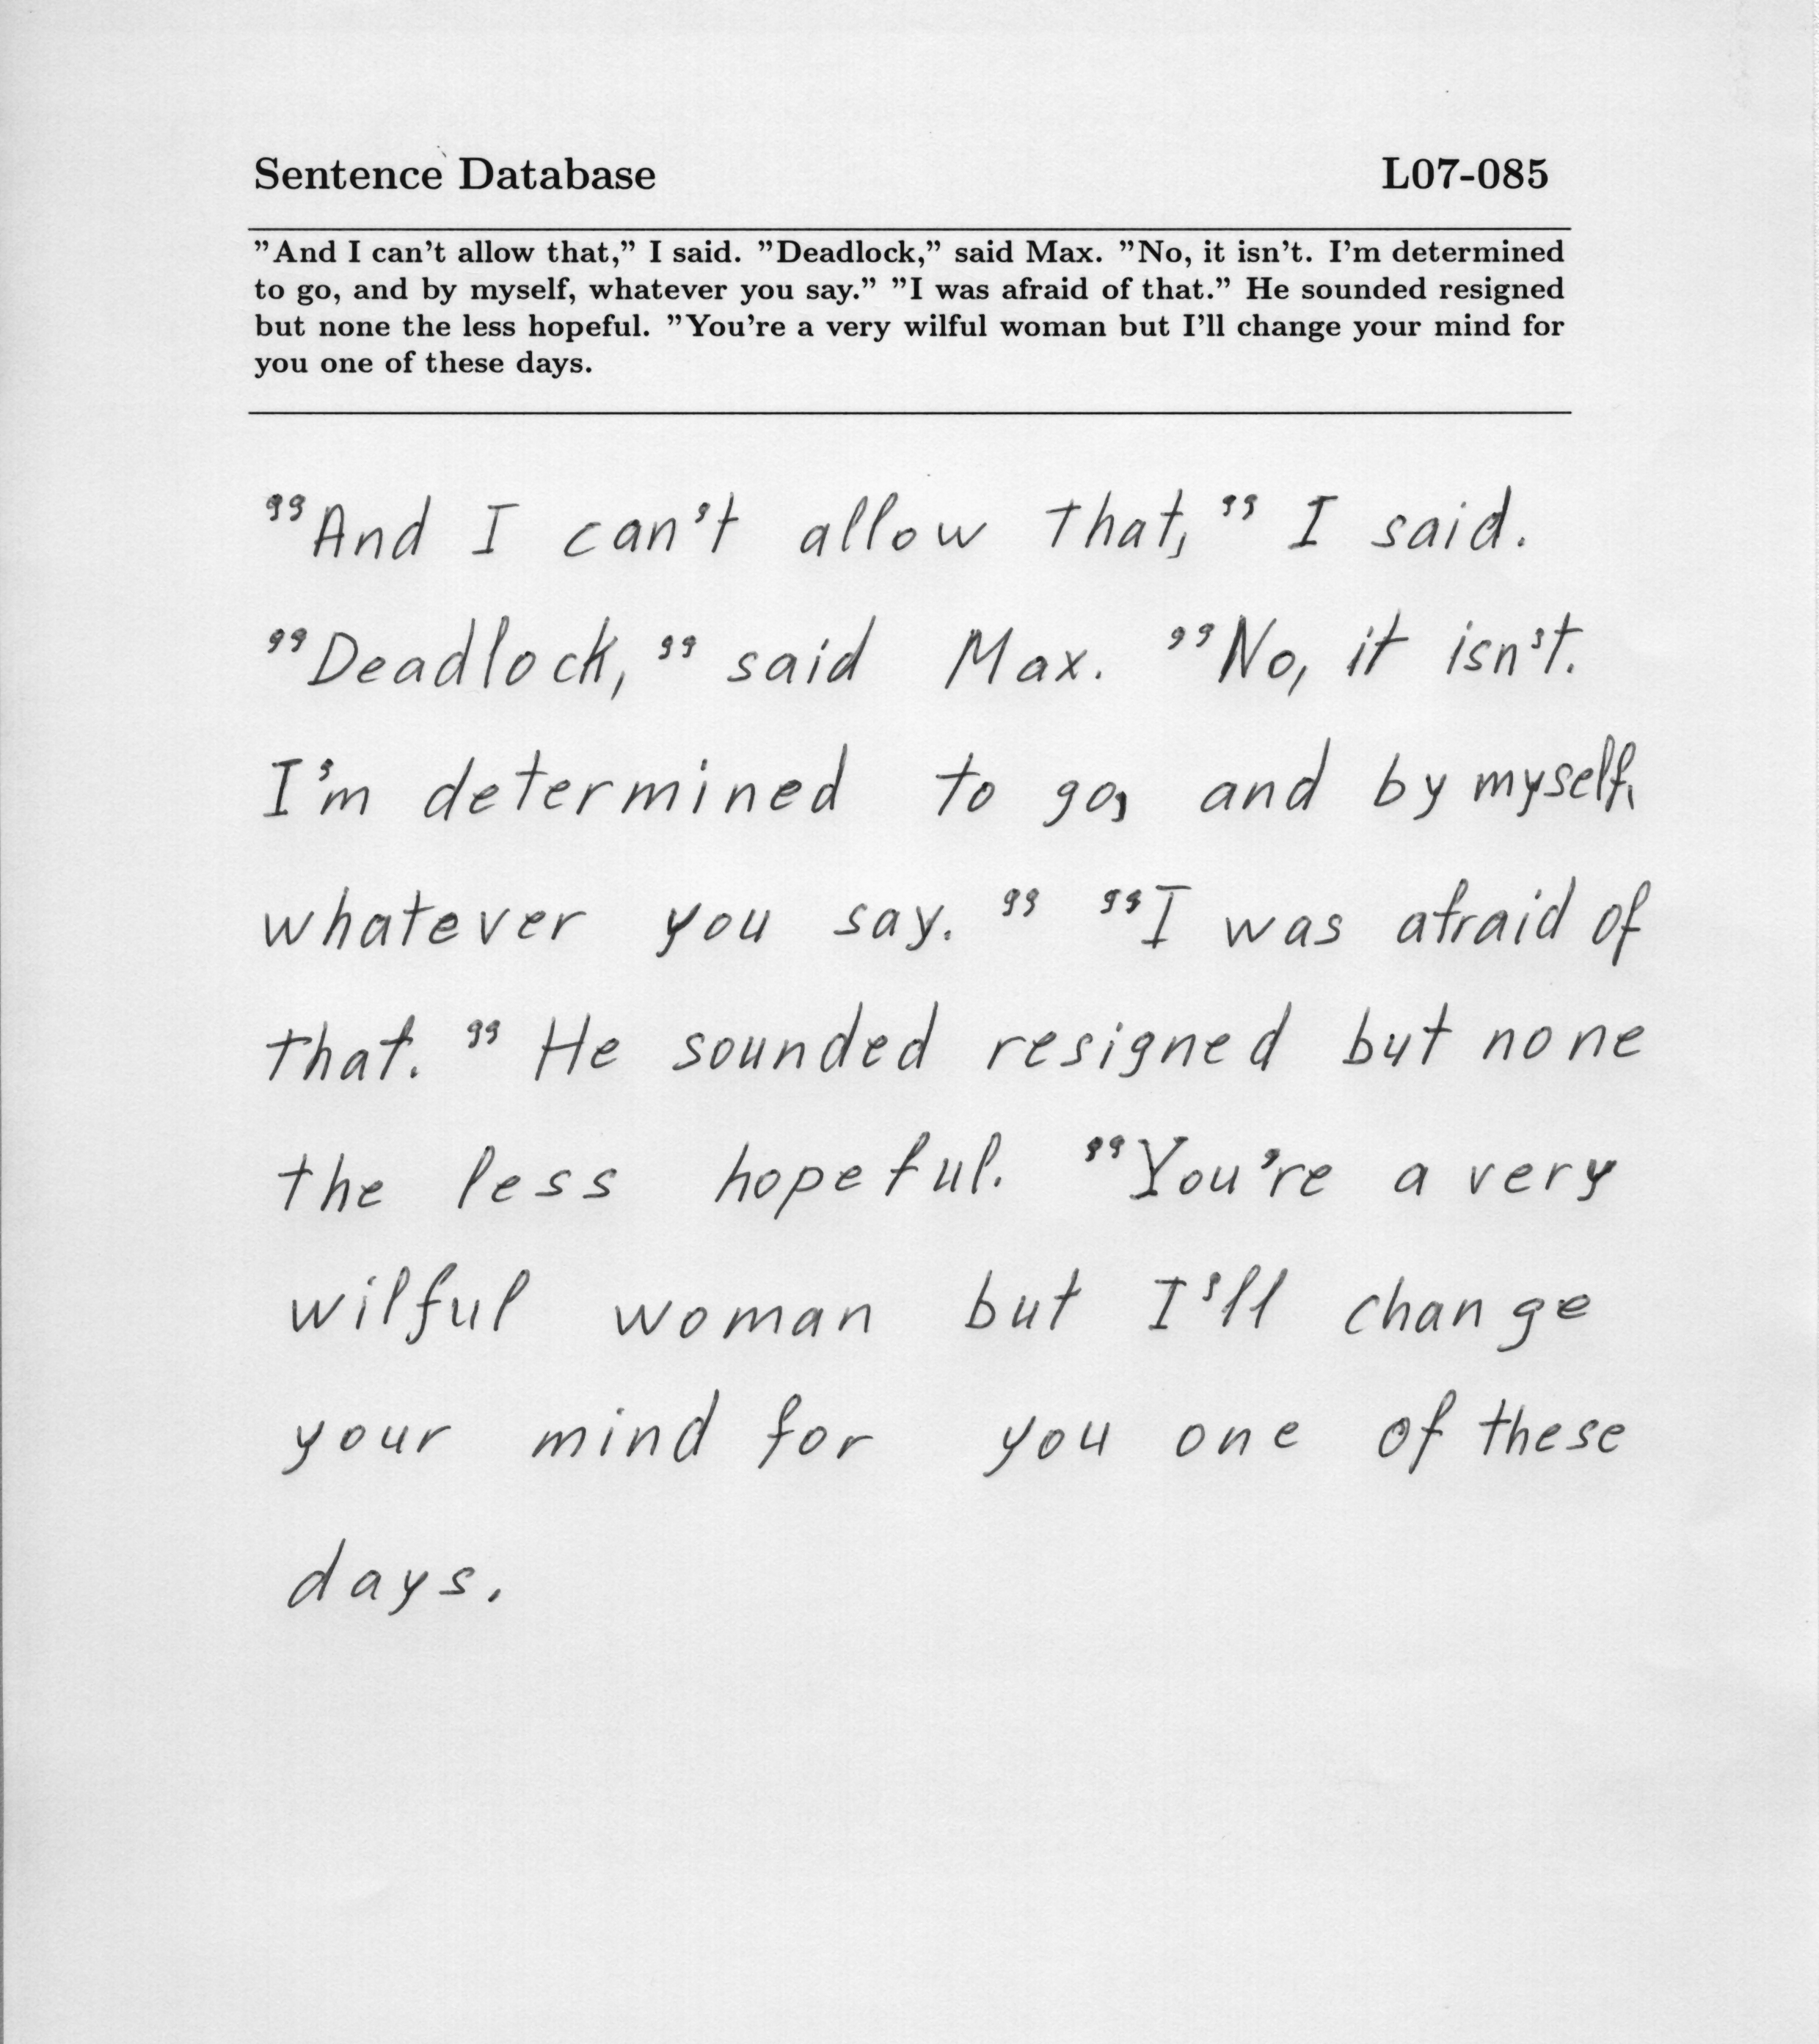 Sentence Database L07-085
”And I can't allow that,” I said. ”Deadlock,” said Max. ”No, it isn't. I'm determined
to go, and by myself, whatever you say.” ”I was afraid of that.” He sounded resigned
but none the less hopeful. ”You're a very wilful woman but I'll change your mind for
you one of these days.
”And I can't allow that,” I said.
”Deadlock,” said Max. ”No, it isn't.
I'm determined to go, and by myself,
whatever you say.” ”I was afraid of
that.” He sounded resigned but none
the less hopeful. ”You're a very
wilful woman but I'll change
your mind for you one of these
days.